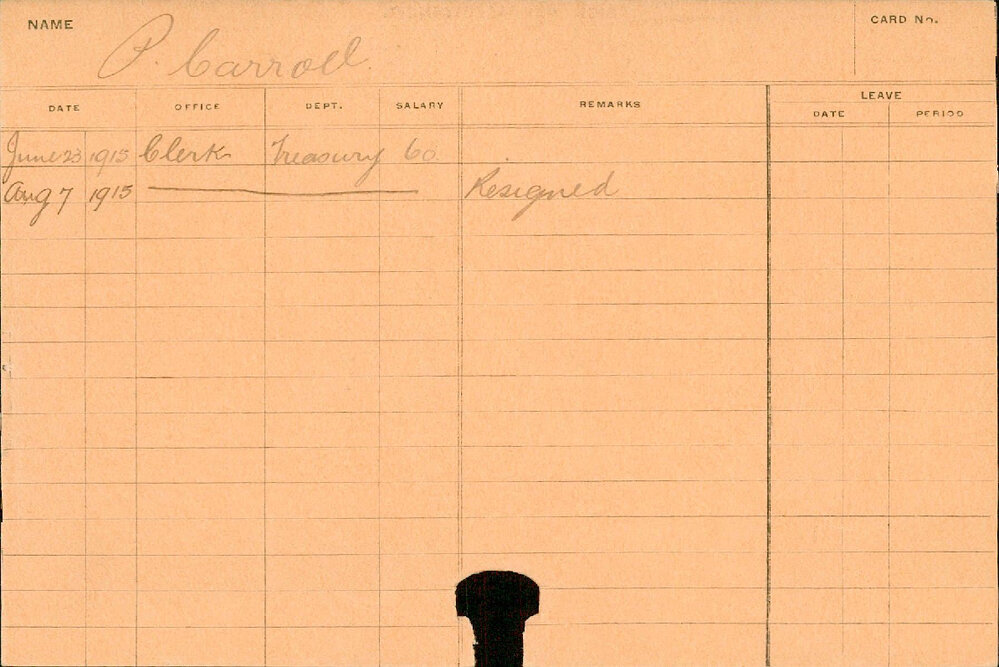 NAME P. Carroll CARD No.
DATE OFFICE DEPT. SALARY REMARKS LEAVE
DATE PERIOD
June 23 1915 Clerk Treasury 60
Aug 7 1915 Resigned